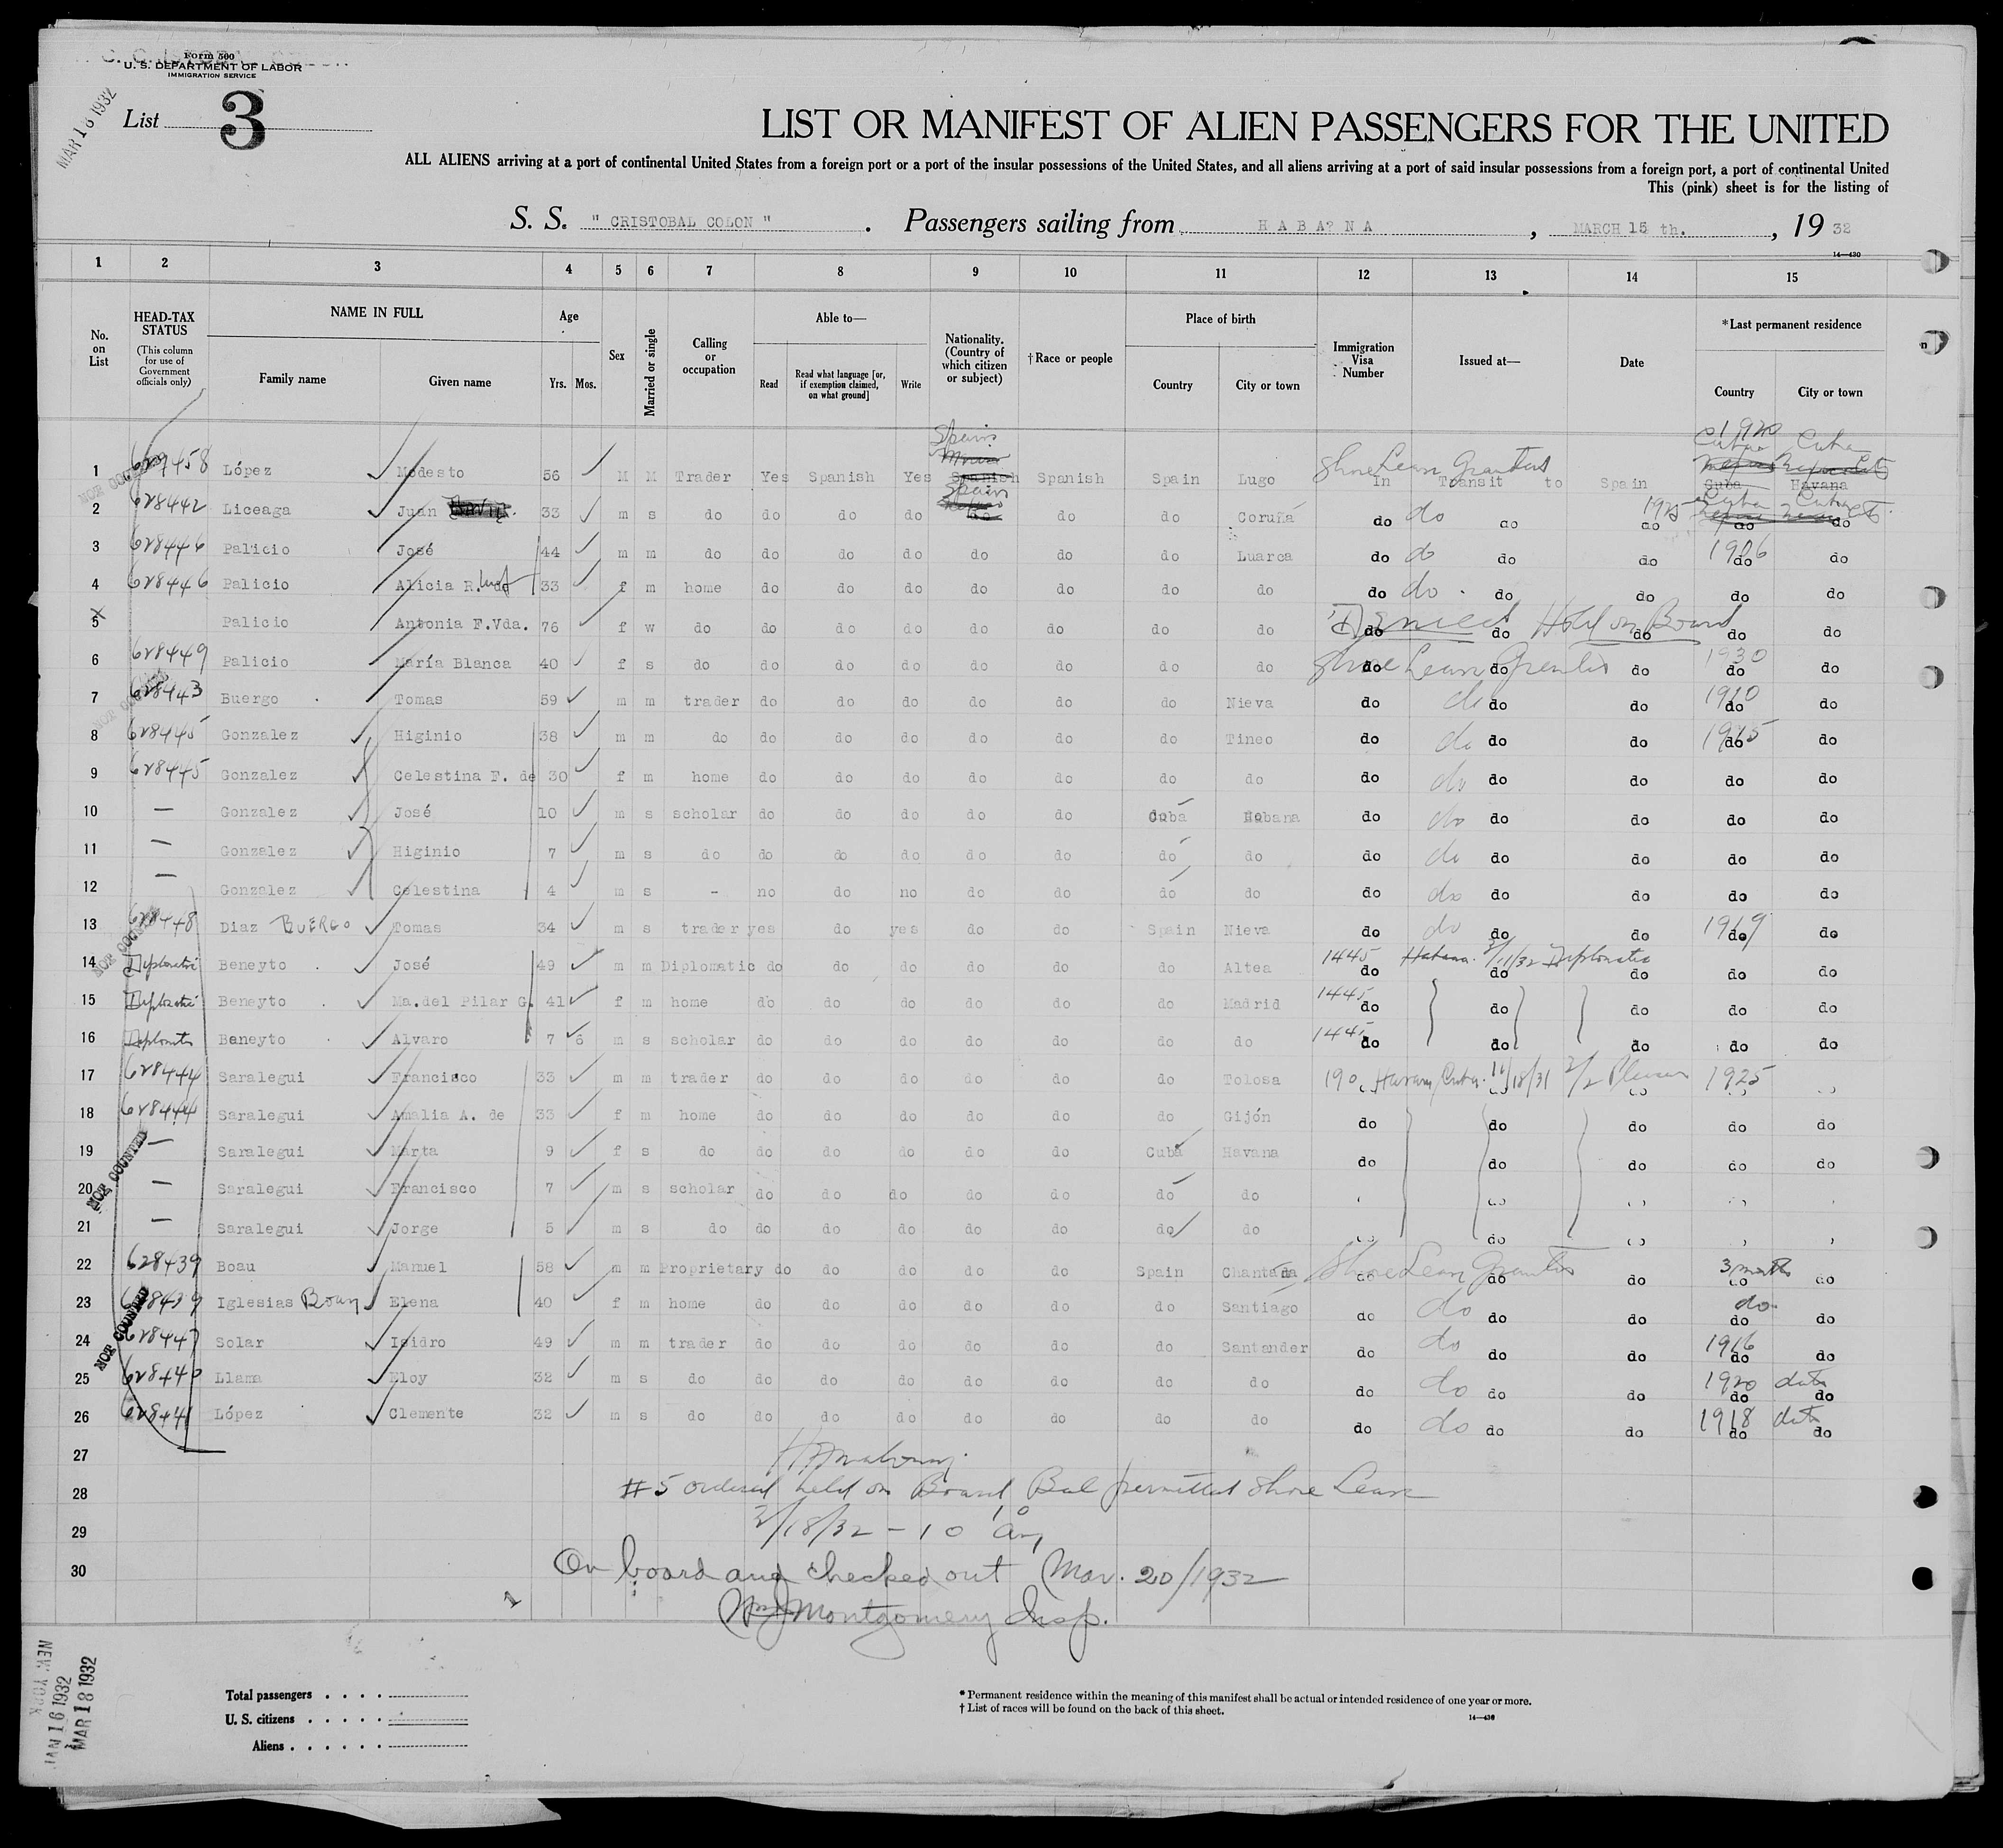 Form 500
U. S. DEPARTMENT OF LABOR
IMMIGRATION SERVICE
MAR 18 1932
List 3
LIST OR MANIFEST OF ALIEN PASSENGERS FOR THE UNITED
ALL ALIENS arriving at a port of continental United States from a foreign port or a port of the insular possessions of the United States, and all aliens arriving at a port of said insular possessions from a foreign port, a port of continental United
This (pink) sheet is for the listing of
S. S. " CRISTOBAL COLON " . Passengers sailing from H A B A N A , MARCH 15 th. , 19 32
14—430
1 2 3 4 5 6 7 8 9 10 11 12 13 14 15
No. on List
HEAD-TAX STATUS (This column for use of Government officials only)
NAME IN FULL Family name Given name
Age Yrs. Mos.
Sex
Married or single
Calling or occupation
Able to— Read Read what language [or, if exemption claimed, on what ground] Write
Nationality. (Country of which citizen or subject)
†Race or people
Place of birth Country City or town
Immigration Visa Number
Issued at—
Date
*Last permanent residence Country City or town
Spain 1920 Cuba Cuba
1 629458 López Modesto 56 M M Trader Yes Spanish Yes Spanish Spanish Spain Lugo Shore Leave Granted In Transit to Spain Cuba Havana
2 628442 Liceaga Juan 33 m s do do do do Spain do do do Coruña do do do 1925 do Cuba do Cuba do
3 628446 Palicio José 44 m m do do do do do do do Luarca do do do do 1906 do do
4 628446 Palicio Alicia R. de 33 f m home do do do do do do do do do do do do do
5 Palicio Antonia F.Vda. 76 f w do do do do do do do do do Denied do Held on Board do do do
6 628449 Palicio María Blanca 40 f s do do do do do do do do Shore Leave Granted do do do 1930 do do
7 628443 Buergo Tomas 59 m m trader do do do do do do Nieva do do do do 1910 do do
8 628445 Gonzalez Higinio 38 m m do do do do do do do Tineo do do do do 1915 do do
9 628445 Gonzalez Celestina F. de 30 f m home do do do do do do do do do do do do do
10 — Gonzalez José 10 m s scholar do do do do do Cuba Habana do do do do do do
11 — Gonzalez Higinio 7 m s do do do do do do do do do do do do do do
12 — Gonzalez Celestina 4 m s - no do no do do do do do do do do do do
13 628448 Diaz BUERGO Tomas 34 m s trader yes do yes do do Spain Nieva do do do do 1919 do do
14 Diplomatic Beneyto José 49 m m Diplomatic do do do do do do Altea 1445 do Habana 3/11/32 do Diplomatic do do do
15 Diplomatic Beneyto Ma.del Pilar G. 41 f m home do do do do do do Madrid 1445 do do do do do
16 Diplomatic Beneyto Alvaro 7 6 m s scholar do do do do do do do 1445 do do do do do
17 628444 Saralegui Francisco 33 m m trader do do do do do do Tolosa 190 Havana, Cuba. 1925
18 628444 Saralegui Amalia A. de 33 f m home do do do do do do Gijón do do do do do
19 — Saralegui Marta 9 f s do do do do do do Cuba Havana do do do do do
20 — Saralegui Francisco 7 m s scholar do do do do do do do
21 — Saralegui Jorge 5 m s do do do do do do do do do
22 628439 Boau Manuel 58 m m Proprietary do do do do do Spain Chantada Shore Leave Granted do do do 3 months do do
23 628439 Iglesias Boau Elena 40 f m home do do do do do do Santiago do do do do do do do
24 628447 Solar Isidro 49 m m trader do do do do do do Santander do do do do 1916 do do
25 628440 Llama Eloy 32 m s do do do do do do do do do do do do 1920 do do
26 628441 López Clemente 32 m s do do do do do do do do do do do do 1918 do do
NOT COUNTED
NOT COUNTED
NOT COUNTED
NOT COUNTED
NOT COUNTED
27
28 #5 ordered held on Board Bal permitted Shore Leave
29 3/18/32 - 10 10 am
30 On board and checked out Mar. 20/1932
Wm J Montgomery Insp.
NEW YORK
JAN 16 1932
MAR 18 1932
Total passengers . . . .
U. S. citizens . . . . .
Aliens . . . . . .
* Permanent residence within the meaning of this manifest shall be actual or intended residence of one year or more.
† List of races will be found on the back of this sheet.
14—430